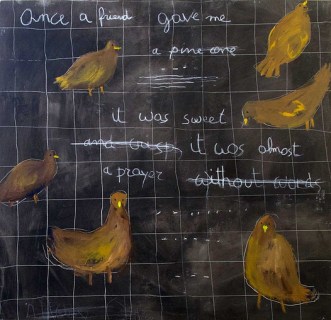 Once a friend gave me
a pine cone
it was sweet
and easy it was almost
a prayer without words